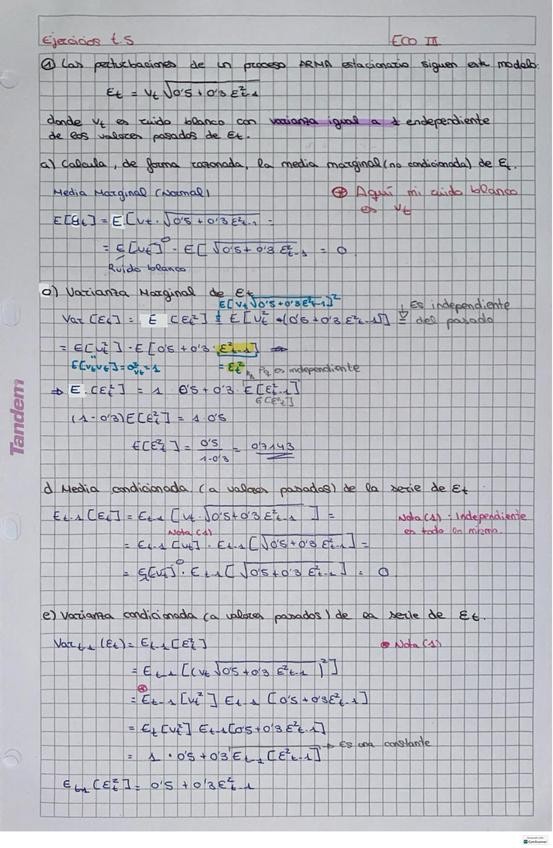 Ejercicios t.5
ECO III
① Las perturbaciones de un proceso ARMA estacionario siguen este modelo:
Et = Vt √0'5 + 0'3 E²t-1
donde Vt es ruido blanco con varianza igual a 1 e independiente
de los valores pasados de Et.
a) Calcula, de forma razonada, la media marginal (no condicionada) de Et
Media Marginal (Normal)
⊛ Aquí mi ruido blanco
es Vt
E[Et] = E[Vt · √0'5 + 0'3 E²t-1 =
= E[Vt]⁰ · E[√0'5 + 0'3 E²t-1 = 0
Ruido blanco
o) Varianza Marginal de Et
E[Vt √0'5 + 0'3 E²t-1]²
Var [Et] = E [E²t] = E[Vt² · (0'5 + 0'3 E²t-1)] =
Es independiente
del pasado
= E[Vt²] · E[0'5 + 0'3 · E²t-1] ⇒
E[VtVt] = σ²vt = 1
= E²t
es independiente
⇒ E [E²t] = 1 0'5 + 0'3 · E[E²t-1]
E[E²t]
(1 - 0'3) E[E²t] = 1 · 0'5
E[E²t] = 0'5 / 1-0'3 = 0'7143
d Media condicionada (a valores pasados) de la serie de Et
Et-1 [Et] = Et-1 [Vt · √0'5 + 0'3 E²t-1 ] =
Nota (1) : Independiente
Nota (1)
= Et-1 [Vt] · Et-1 [√0'5 + 0'3 E²t-1] =
= E[Vt]⁰ · Et-1 [√0'5 + 0'3 E²t-1] = 0
e) Varianza condicionada (a valores pasados) de la serie de Et.
Vart-1 (Et) = Et-1 [E²t]
⊛ Nota (1)
= Et-1 [(Vt √0'5 + 0'3 E²t-1 )²]
⊛
= Et-1 [Vt²] Et-1 [0'5 + 0'3 E²t-1]
= Et [Vt²] Et-1 [0'5 + 0'3 E²t-1]
= 1 · 0'5 + 0'3 Et-1 [E²t-1] → Es una constante
Et-1 [E²t] = 0'5 + 0'3 E²t-1
Tandem
CamScanner